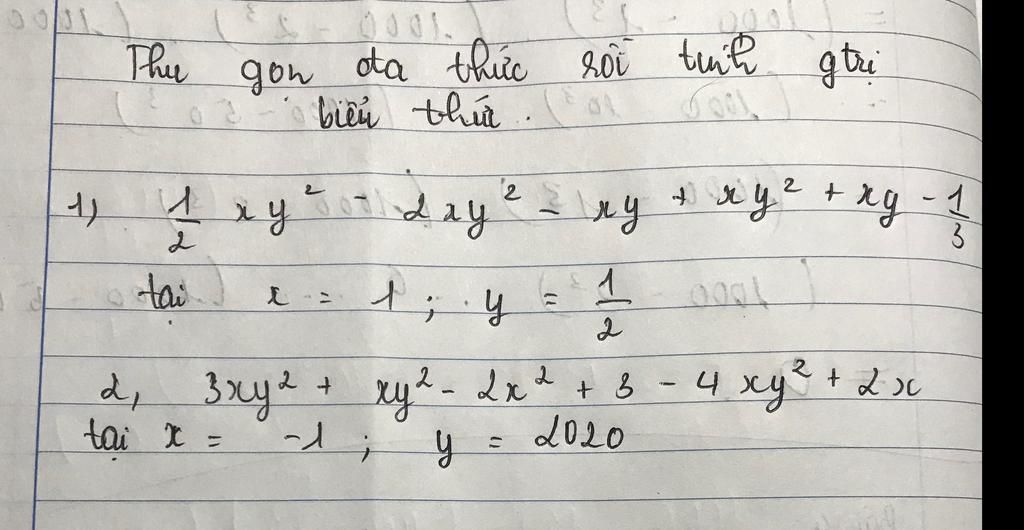 Thu gọn đa thức rồi tính gtrị
biểu thức.
1) 1/2 xy² - 2xy² - xy + xy² + xy - 1/3
tại x = 1 ; y = 1/2
2, 3xy² + xy² - 2x² + 3 - 4xy² + 2x
tại x = -1 ; y = 2020